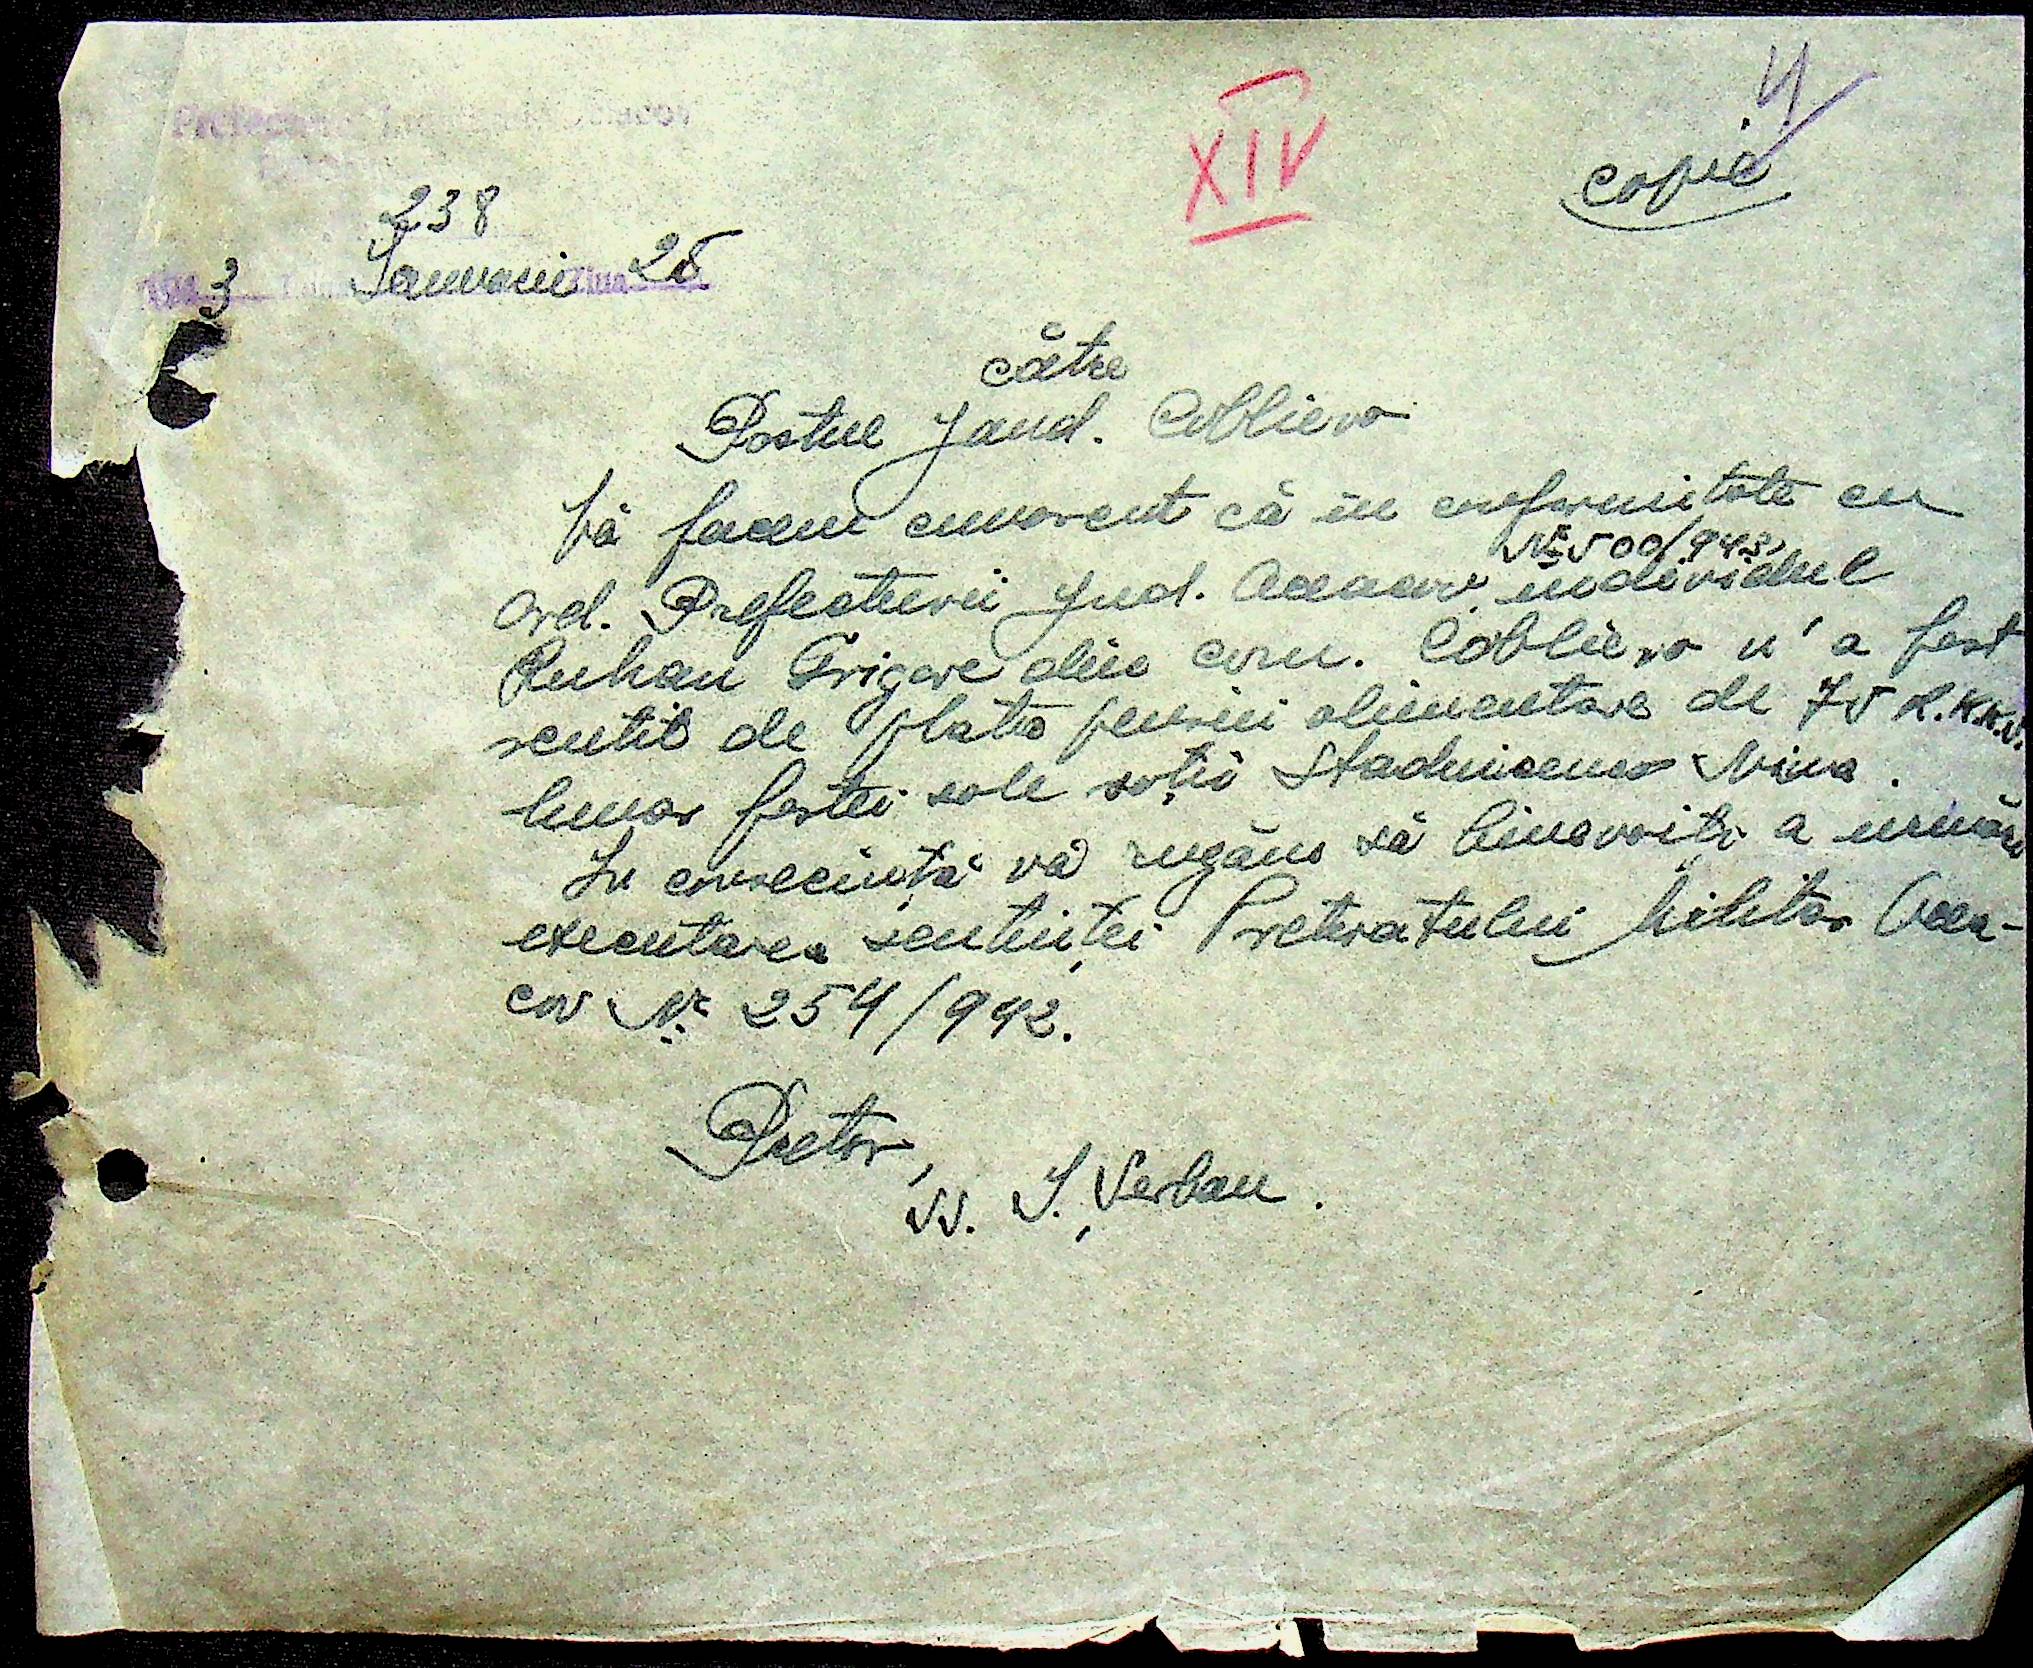 4
XIV
copie
238
3 Ianuarie 25
către
Postul Jand. Coblievo
Vă facem cunoscut că în conformitate cu
Nr. 500/943,
Ord. Prefecturii Jud. Oceacov individul
Ruhan Grigore din com. Coblievo n'a fost
scutit de plata pensiei alimentare de 75 R.K.K.S.
lunar fostei sale soții Stadnicenco Nina.
In consecință vă rugăm să binevoiți a urmări
executarea sentinței Pretoratului Militar Ocea-
cov Nr. 254/942.
Pretor,
ss. I. Șerban.